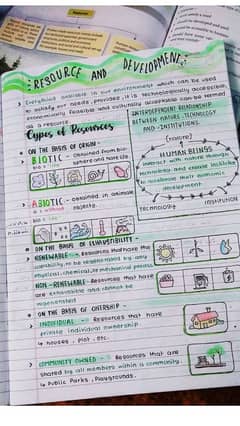 RESOURCE AND DEVELOPMENT
Everything available in our environment which can be used
to satisfy our needs, provided, it is technologically accessible
economically feasible and culturally acceptable can be termed
as a resource
Types of Resources
INTERDEPENDENT RELATIONSHIP
BETWEEN NATURE, TECHNOLOGY
AND INSTITUTIONS.
ON THE BASIS OF ORIGIN -
BIOTIC - Obtained from bio-
sphere and have life
ABIOTIC - Obtained in
(nature)
HUMAN BEINGS
interact with nature through
technology and create institutions
to accelerate their economic
development
Technology
Institution
ON THE BASIS OF EXHAUSTIBILITY -
RENEWABLE - Resources that have the
to be by
physical, chemical, or mechanical process
NON-RENEWABLE - Resources that
are exhaustible and cannot be
regenerated
ON THE BASIS OF OWNERSHIP -
INDIVIDUAL - Resources that have
private individual ownership
houses, plot, etc.
COMMUNITY OWNED - Resources that are
shared by all members within a community.
Public Parks, Playgrounds.